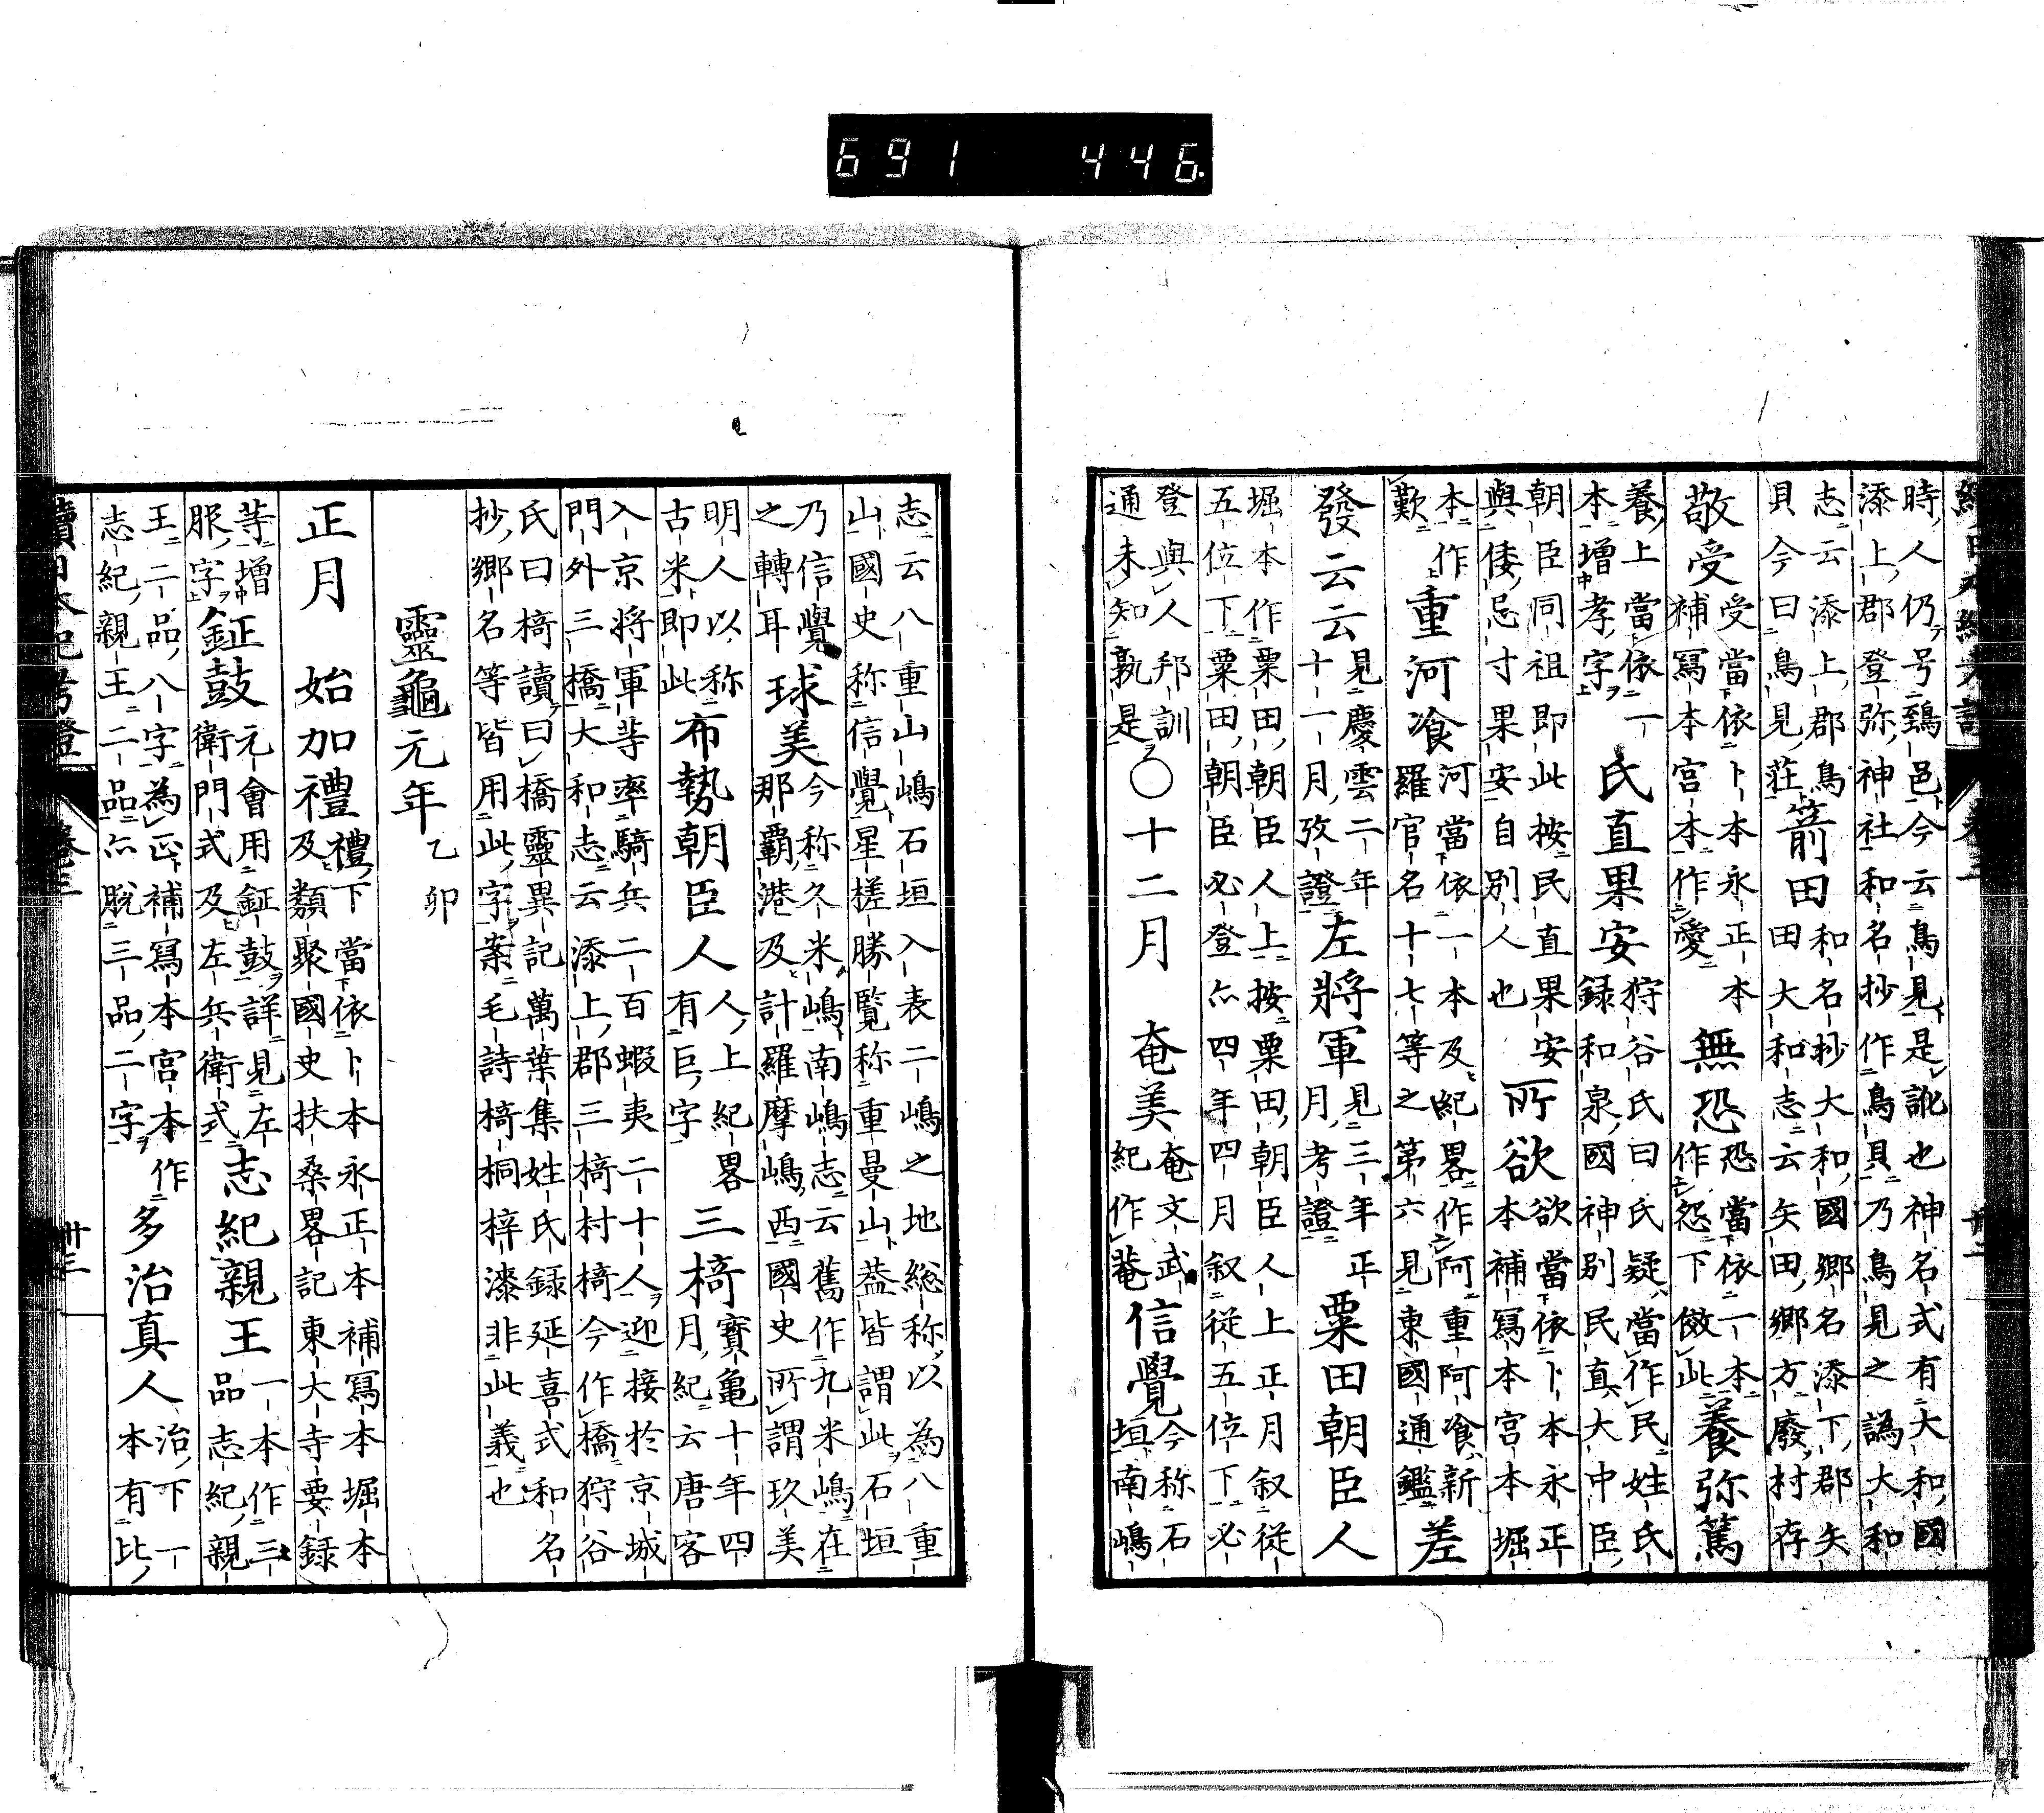 691 446
時人仍号鵄邑今云鳥見是訛也神名式有大和國
添上郡登弥神社和名抄作鳥貝乃鳥見之譌大和
志云添上郡鳥
貝今曰鳥見荘
箭田
和名抄大和國鄉名添下郡矢
田大和志云矢田鄉方廢村存
敬受
受當依卜本永正本
補寫本宮本作愛
無恐
恐當依一本
作怨下倣此
養弥篤
養上當依一
本增孝字
氏直果安
狩谷氏曰氏疑當作民姓氏
録和泉國神別民直大中臣
朝臣同祖即此按民直果安
與倭忌寸果安自別人也
所欲
欲當依卜本永正
本補寫本宮本堀
本作
歎
重河飡
河當依一本及紀畧作阿重阿飡新
羅官名十七等之第六見東國通鑑
差
發云云
見慶雲二年
十一月攷證
左將軍
見三年正
月考證
粟田朝臣人
堀本作粟田朝臣人上按粟田朝臣人上正月叙從
五位下粟田朝臣必登亦四年四月叙從五位下必
登與人邦訓
通未知孰是
〇十二月
奄美
奄文武
紀作菴
信覺
今称石
垣南嶋
志云八重山嶋石垣入表二嶋之地総称以為八重
山國史称信覺星槎勝覽称重曼山葢皆謂此石垣
乃信覺
之轉耳
球美
今称久米嶋南嶋志云舊作九米嶋在
那覇港及計羅摩嶋西國史所謂玖美
明人以称
古米即此
布勢朝臣人
人上紀畧
有巨字
三椅
寳亀十年四
月紀云唐客
入京將軍等率騎兵二百蝦夷二十人迎接於京城
門外三橋大和志云添上郡三椅村椅今作橋狩谷
氏曰椅讀曰橋靈異記萬葉集姓氏録延喜式和名
抄鄉名等皆用此字案毛詩椅桐梓漆非此義也
靈龜元年乙卯
正月
始加禮
禮下當依卜本永正本補寫本堀本
及類聚國史扶桑畧記東大寺要録
等增
服字
鉦鼓
元會用鉦鼓詳見左
衛門式及左兵衛式
志紀親王
一本作三
品志紀親
王二品八字為正補寫本宮本作
志紀親王二品亦脫三品二字
多治真人
治下一
本有比
續日本紀考證 卷三 卅三